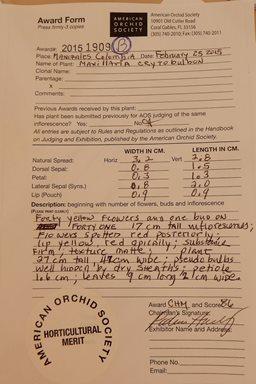 Award Form
Press firmly-3 copies
AMERICAN
ORCHID
SOCIETY
American Orchid Society
10901 Old Cutler Road
Coral Gables, FL 33156
(305) 740-2010; Fax (305) 740-2011
Award#: 20151909 B
Place: Manizales Colombia Date: February 25 2015
Name of Plant: Maxillaria cryptobulbon
Clonal Name:
Parentage:
x
Comments:
Previous Awards received by this plant:
Has plant been submitted previously for AOS judging of the same
inflorescence? Yes: No:
All entries are subject to Rules and Regulations as outlined in the Handbook
on Judging and Exhibition, published by the American Orchid Society.
WIDTH IN CM. LENGTH IN CM.
Natural Spread: Horiz 3.2 Vert 2.8
Dorsal Sepal: 0.8 1.5
Petal: 0.3 1.3
Lateral Sepal (Syns.) 0.8 2.0
Lip (Pouch) 0.4 0.9
Description: beginning with number of flowers, buds and inflorescence
(PLEASE PRINT CLEARLY)
Forty yellow flowers and one bud on
FORTY ONE 17 cm tall inflorescences;
Flowers spotted red posteriorly;
lip yellow, red apically; substance
firm; texture matte; plant
27 cm tall, 47 cm wide; pseudobulbs
well hidden by dry sheaths; petiole
1.6 cm; leaves 9 cm long 2 cm wide.
AMERICAN ORCHID SOCIETY
HORTICULTURAL
MERIT
Award CHM and Score 86
Chairman's Signature:
Exhibitor Name and Address:
Phone No.
Email: